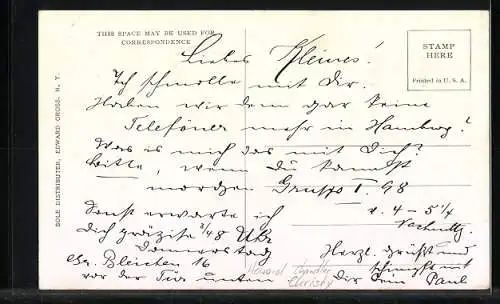 THIS SPACE MAY BE USED FOR
CORRESPONDENCE
STAMP
HERE
Printed in U. S. A.
SOLE DISTRIBUTER, EDWARD GROSS, N. Y.
Liebes Kleines!
Ich schmolle mit Dir.
Haben wir denn gar keine
Teleföner mehr in Hamburg?
Was is mich das mit Dich?
Bitte, wenn Du kannst
morgen Gruppe I. 98
v. 4 – 5 1/4
Sonst erwarte ich
Dich präzise 1/48 Uhr
Donnerstag
Gr. Bleichen 16
vor der Tür unten
Herzl. grüßt und
schimpft mit
Dir Dein Paul
Howard Chandler
Christy